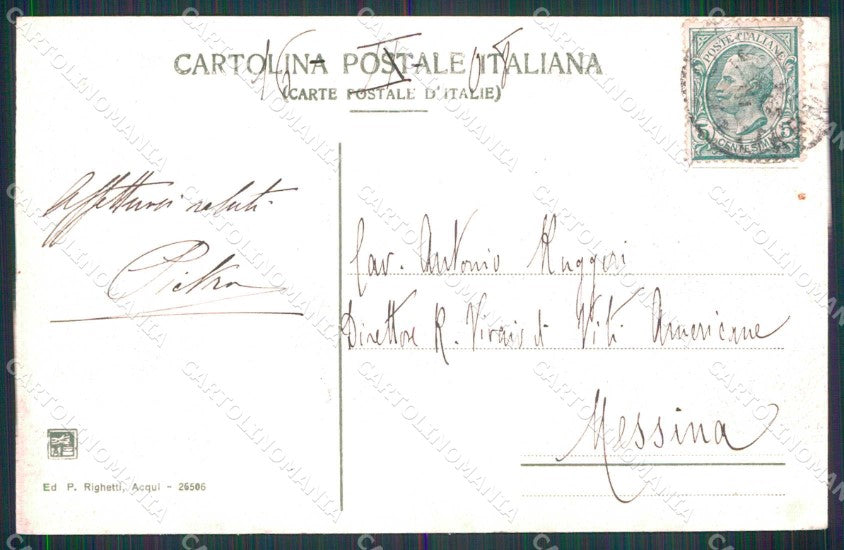 16 - IX - 08
CARTOLINA POSTALE ITALIANA
(CARTE POSTALE D'ITALIE)
POSTE·ITALIANE
5 CENTESIMI 5
Affettuosi saluti
Pietro
Cav. Antonio Ruggeri
Direttore R. Vivaio di Viti Americane
Messina
Ed P. Righetti, Acqui - 26506
CARTOLINOMANIA